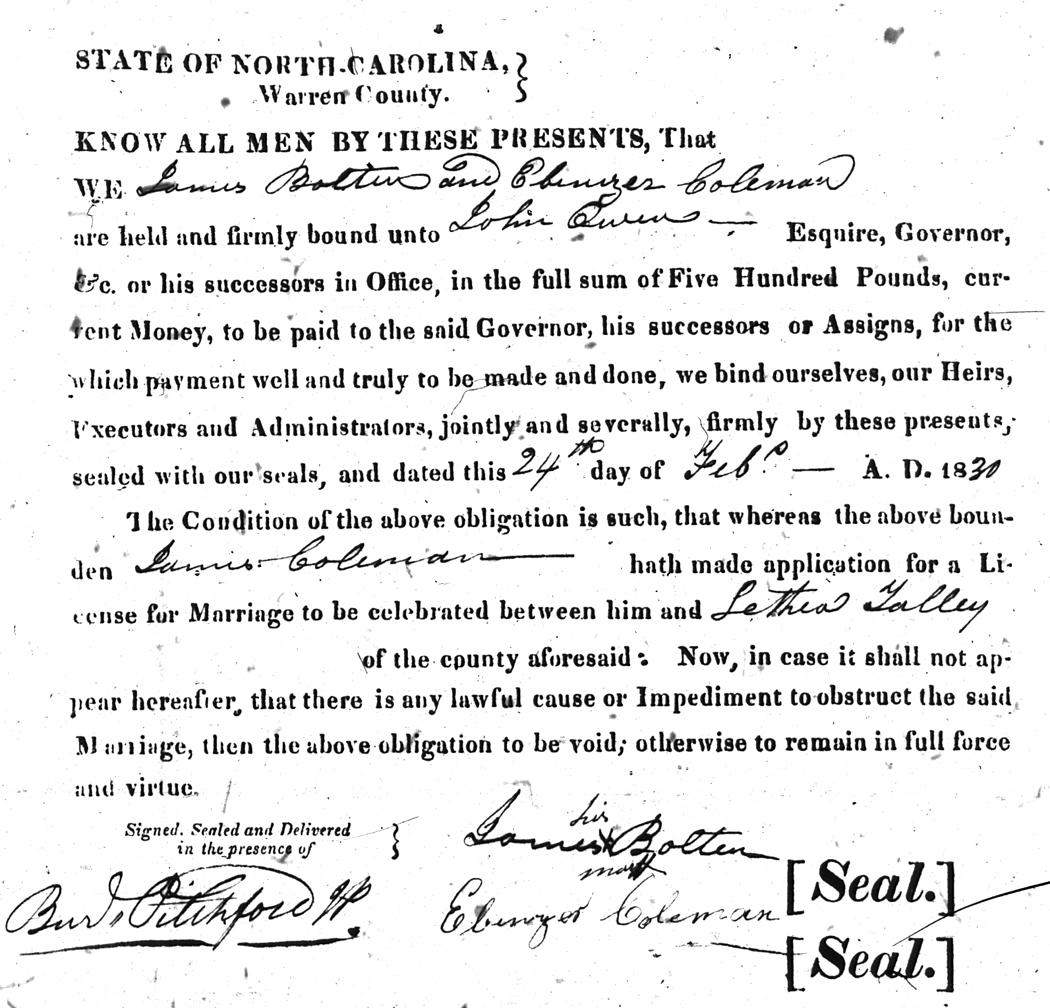 STATE OF NORTH-CAROLINA, }
Warren County.
KNOW ALL MEN BY THESE PRESENTS, That
WE James Bolten and Ebenezer Coleman
are held and firmly bound unto John Owen — Esquire, Governor,
&c. or his successors in Office, in the full sum of Five Hundred Pounds, cur-
rent Money, to be paid to the said Governor, his successors or Assigns, for the
which payment well and truly to be made and done, we bind ourselves, our Heirs,
Executors and Administrators, jointly and severally, firmly by these presents,
sealed with our seals, and dated this 24th day of Feby — A. D. 1830
The Condition of the above obligation is such, that whereas the above boun-
den James Coleman — hath made application for a Li-
cense for Marriage to be celebrated between him and Lethea Talley
of the county aforesaid: Now, in case it shall not ap-
pear hereafter, that there is any lawful cause or Impediment to obstruct the said
Marriage, then the above obligation to be void; otherwise to remain in full force
and virtue.
Signed, Sealed and Delivered }
in the presence of
his
James X Bolten [Seal.]
mark
Pitchford JP
Ebenezer Coleman [Seal.]